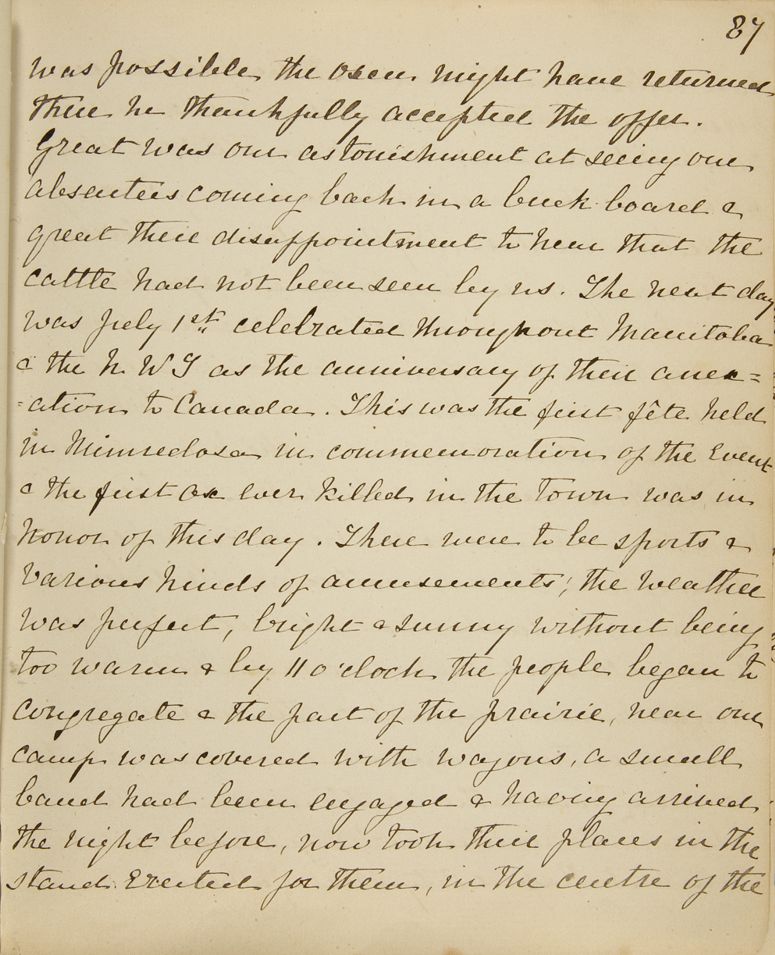 87
was possible the oxen might have returned
there he thankfully accepted the offer.
Great was our astonishment at seeing our
absentees coming back in a buck-board &
great their disappointment to hear that the
cattle had not been seen by us. The next day
was July 1st celebrated throughout Manitoba
& the N. W T as the anniversary of their anex=
=ation to Canada. This was the first fête held
in Minnedosa in commemoration of the Event
& the first ox ever killed in the Town was in
honor of this day. There were to be sports &
various kinds of amusements; the weather
was perfect, bright & sunny without being
too warm & by 11 o'clock the people began to
congregate & the part of the prairie, near our
camp was covered with wagons, a small
band had been engaged & having arrived
the night before, now took their places in the
stand Erected for them, in the centre of the